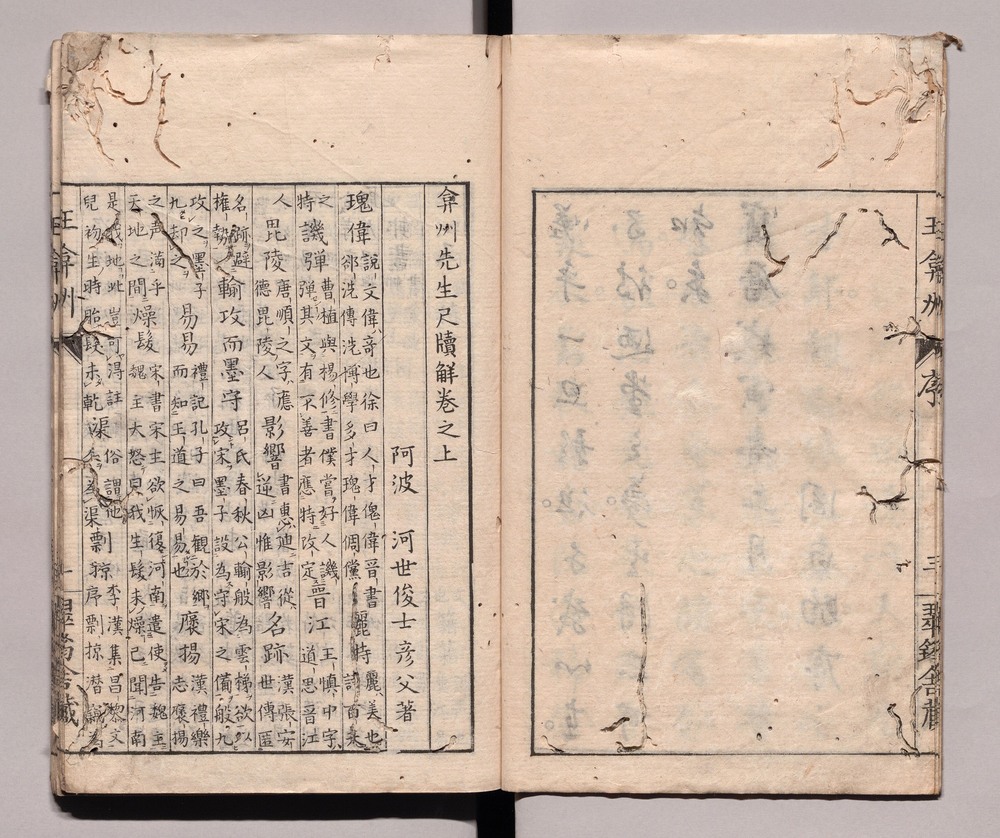 弇州先生尺牘解卷之上
阿波 河世俊士彦父著
瑰偉 說文偉奇也徐曰人才傀偉晉書
郤詵傳詵博學多才瑰偉倜儻 麗 詩 麗美也
之 曹植與楊脩書僕嘗好人譏
譏彈 彈其文有不善者應時改定 晉江 王慎中字
道思晉江
人 毘陵 唐順之字應
德毘陵人 影響 書惠迪吉從
逆凶惟影響 名跡 漢張安
世傳匿
名跡避
權勢 輸攻而墨守 呂氏春秋公輸般為雲梯欲以
攻宋墨子設為守宋之備般九
攻之墨子
九却之 易易 禮記孔子曰吾觀於鄉
而知王道之易易也 褒揚 漢禮樂
志褒揚
之声滿乎
天地之間 燥髮 宋書宋主欲恢復河南遣使告魏主
魏主大怒曰我生髮未燥已聞河南
是我地此豈可得註俗謂他
兒初生時胎髮未乾 渠 為渠 剽掠 李漢集昌黎文
序剽掠潛竊為
王弇州
一
王弇州
序
三